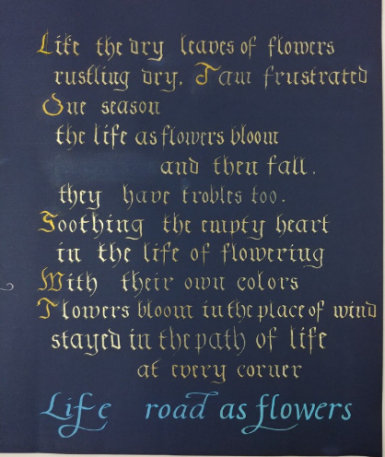 Like the dry leaves of flowers
rustling dry. I am frustrated
One season
the life as flowers bloom
and then fall.
they have trobles too.
Soothing the empty heart
in the life of flowering
With their own colors
Flowers bloom in the place of wind
stayed in the path of life
at every corner
Life road as flowers